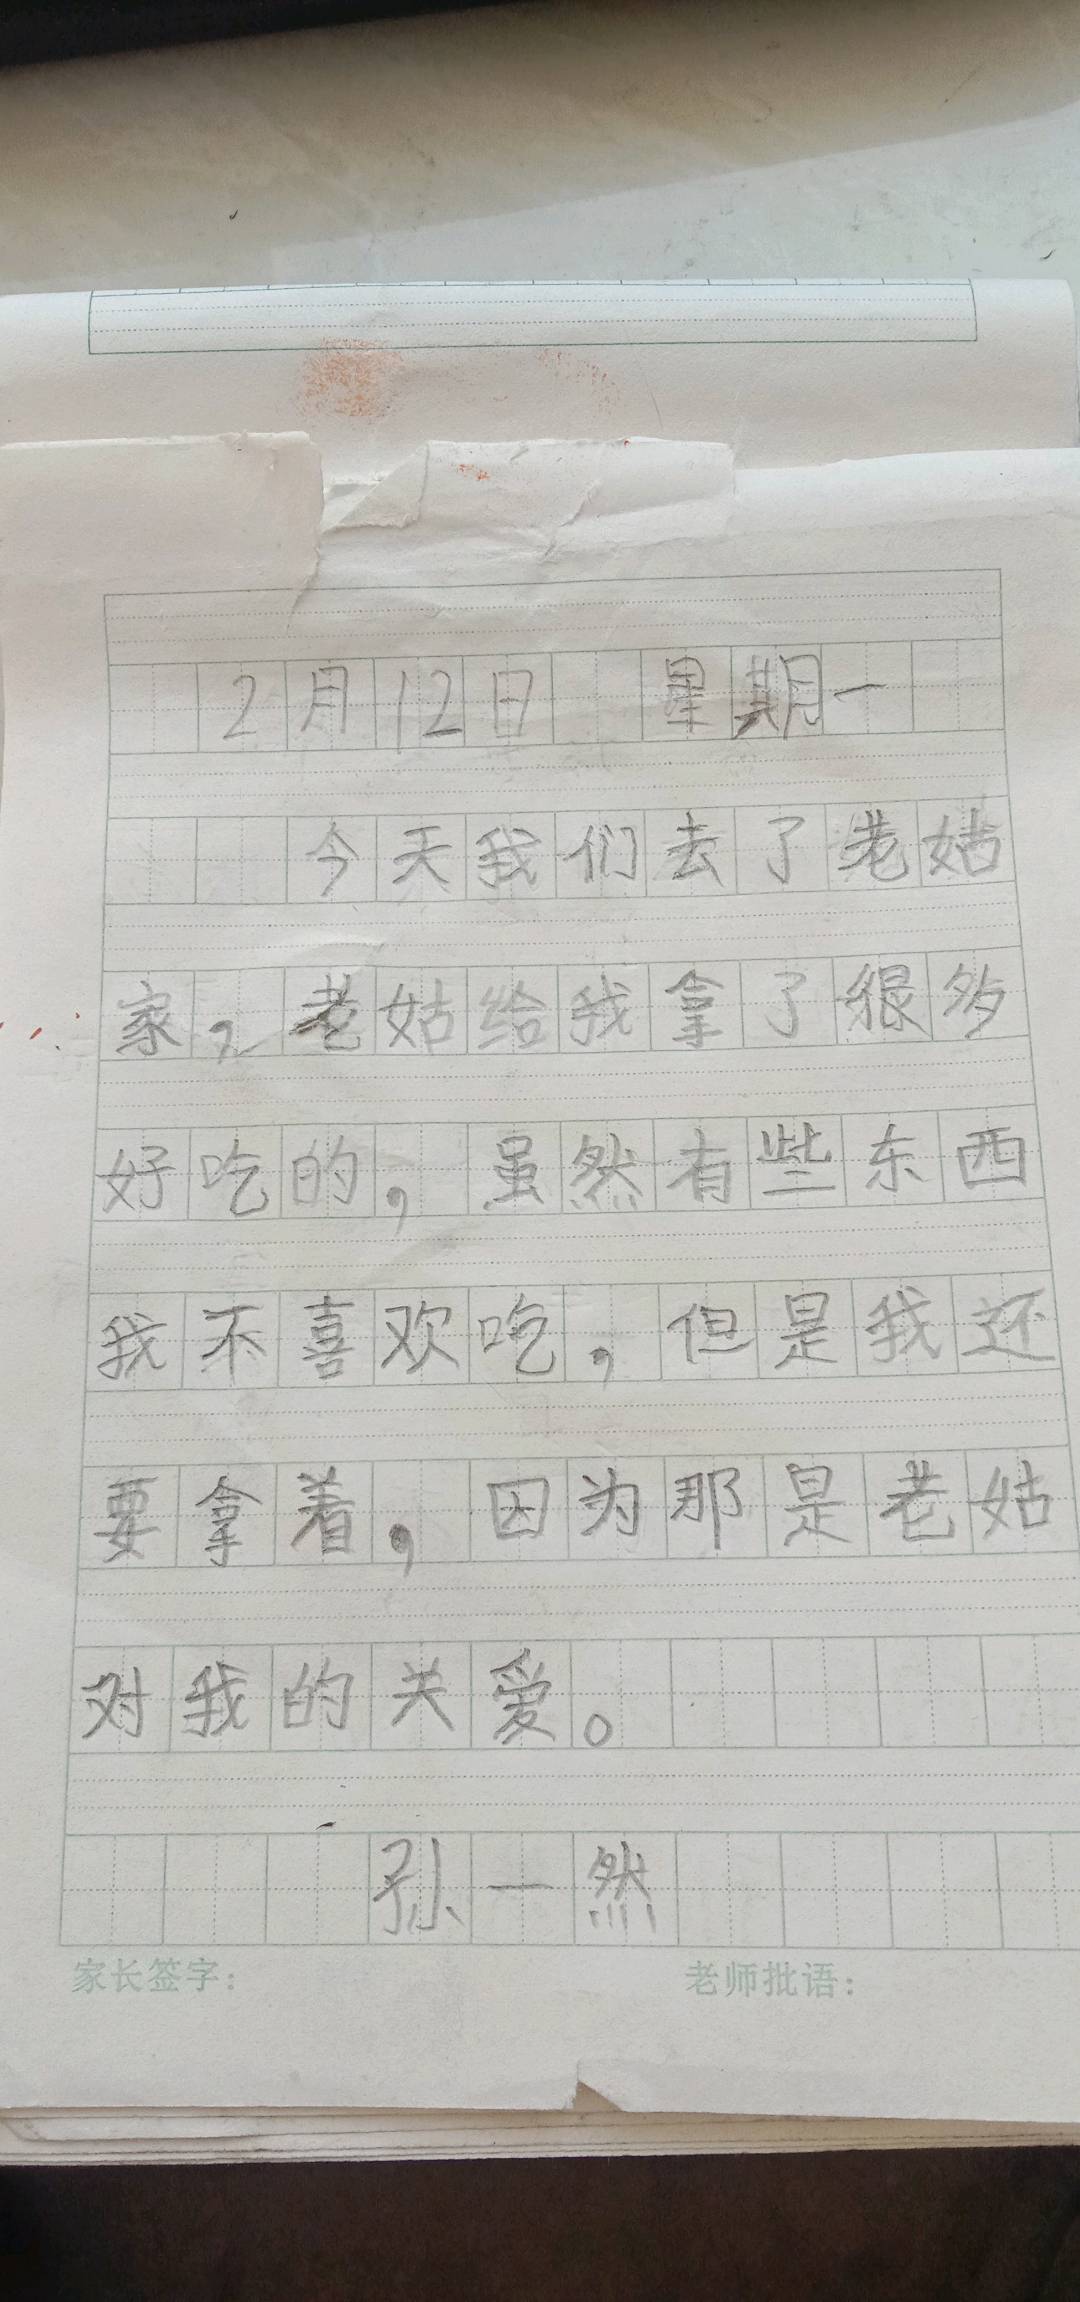 2月12日 星期一
今天我们去了老姑
家，老姑给我拿了很多
好吃的，虽然有些东西
我不喜欢吃，但是我还
要拿着，因为那是老姑
对我的关爱。
孙一然
家长签字： 老师批语：